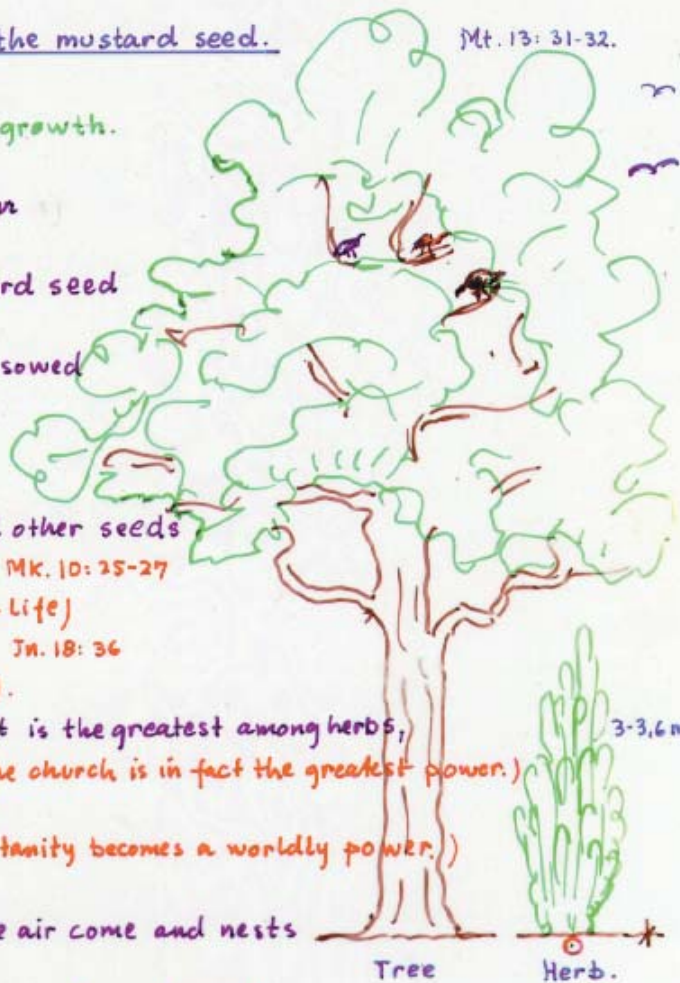 the mustard seed. Mt. 13: 31-32.
growth.
rd seed
sowed
other seeds
Mk. 10: 25-27
Life)
Jn. 18: 36
t is the greatest among herbs,
3-3,6 m
e church is in fact the greatest power.)
tanity becomes a worldly power.)
e air come and nests
Tree Herb.